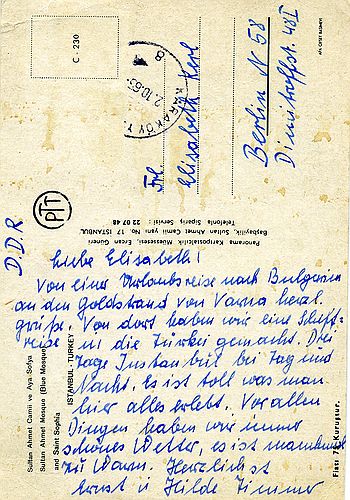 C - 230
KARAKÖY
2.10.65
8
HER ÇEŞİT BASKISI
Frl.
Elisabeth
Berlin N 58
Dimitroffstr. 48 I
D.D.R.
PTT
Panorama Kartpostalcılık Müessesesi, Ercan Güneri
Başbayilik, Sultan Ahmet Camii yanı No. 17 İSTANBUL
Telefonla Sipariş Servisi : 22 07 48
Liebe Elisabeth!
Von einer Urlaubsreise nach Bulgarien
an den Goldstrand von Varna herzl.
Grüße. Von dort haben wir eine Schiff-
reise in die Türkei gemacht. Drei
Tage Instanbul bei Tag und
Nacht. Es ist toll was man
hier alles erlebt. Vor allen
Dingen haben wir immer
schönes Wetter, es ist manchmal
zu warm. Herzlichst
Ernst u. Hilde Zimmer
Sultan Ahmet Camii ve Aya Sofya
Sultan Ahmet Mosque (Blue Mosque)
and Saint Sophia
İSTANBUL - TURKEY
Fiatı 75 Kuruştur.